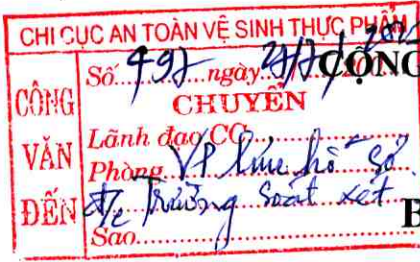 CHI CỤC AN TOÀN VỆ SINH THỰC PHẨM
CÔNG VĂN ĐẾN
Số 497 ngày
CỘNG
CHUYỂN
Lãnh đạo CC
Phòng VP lưu hồ sơ
đ/c Trường soát xét
B
Sao